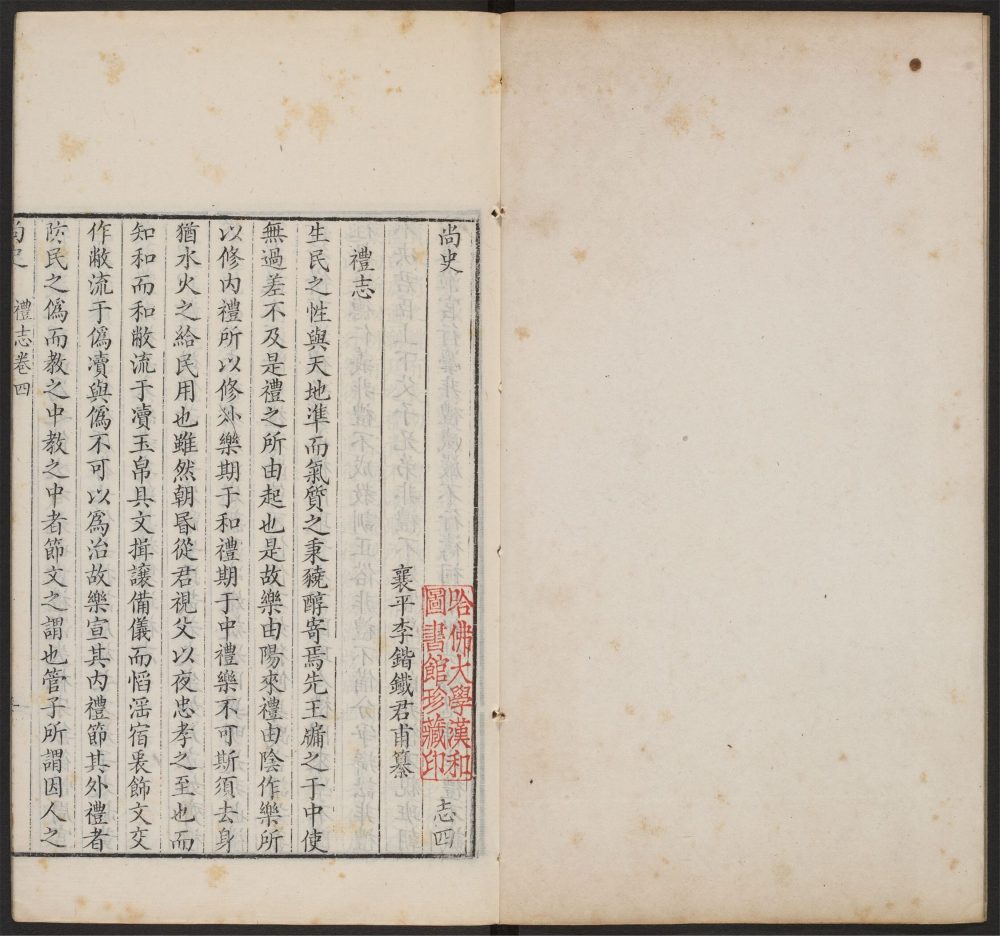 尚史 志四
襄平李鍇鐵君甫纂
哈佛大學漢和
圖書館珍藏印
禮志
生民之性與天地準而氣質之秉豌醇寄焉先王牖之于中使
無過差不及是禮之所由起也是故樂由陽來禮由陰作樂所
以修内禮所以修外樂期于和禮期于中禮樂不可斯須去身
猶水火之給民用也雖然朝昬從君視父以夜忠孝之至也而
知和而和敝流于瀆玉帛具文揖讓備儀而慆滛宿裏飾文交
作敝流于僞瀆與僞不可以爲治故樂宣其内禮節其外禮者
防民之僞而教之中教之中者節文之謂也管子所謂因人之
尚史 禮志卷四